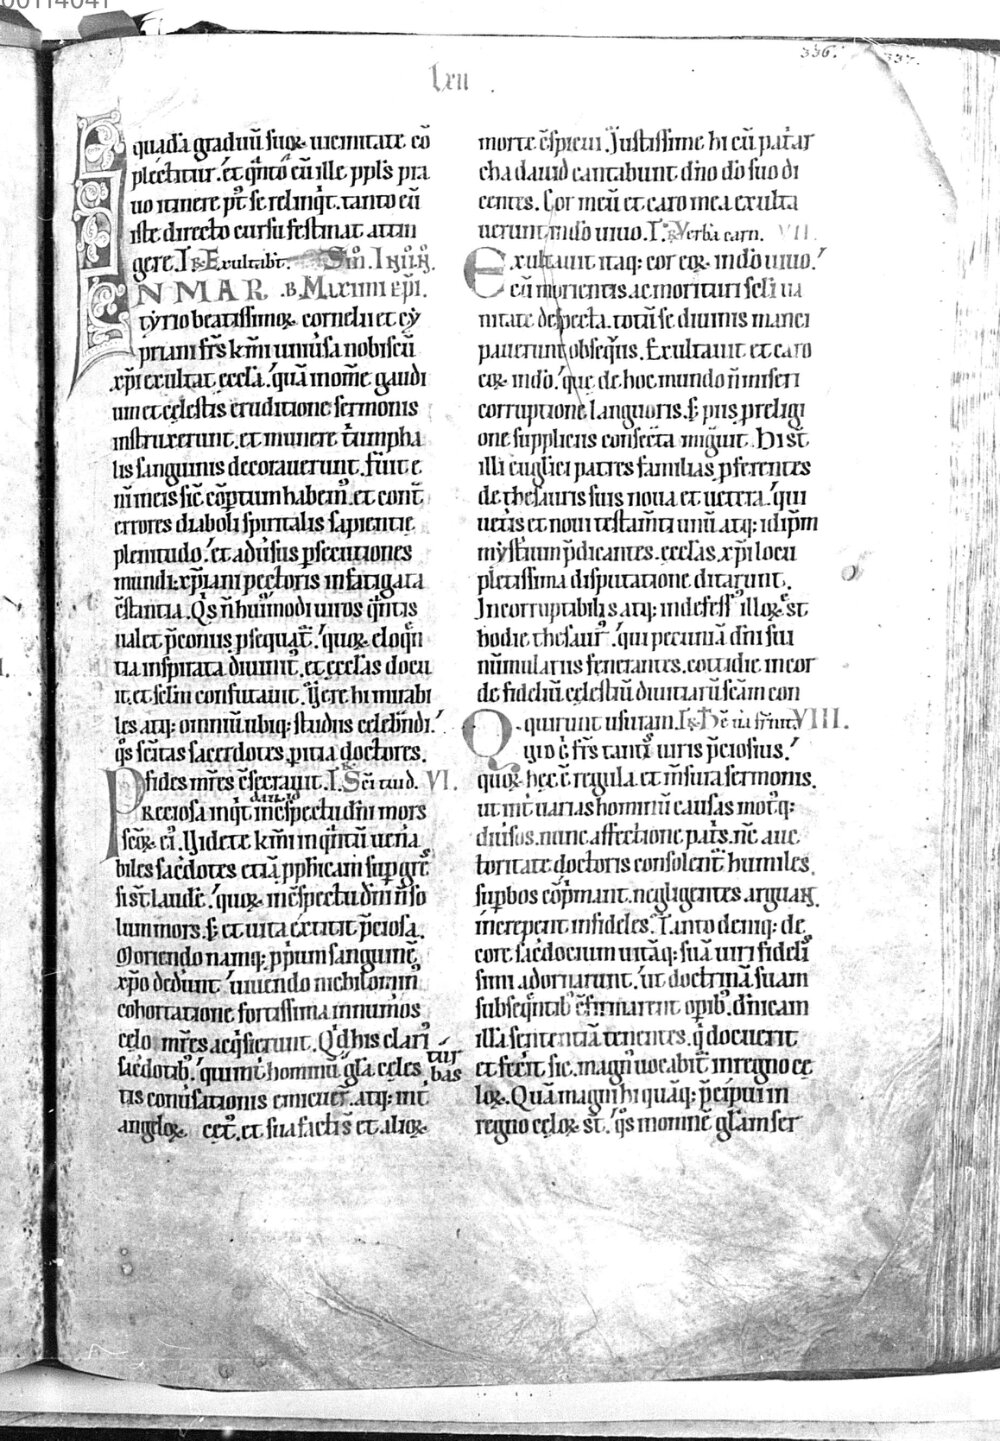 00114041
336. 337.
lxii
quada graduū suoꝝ uicinitate cō
plectitur. et qͣnto cū ille ppl's pra
uo itinere pꝰ se relinqͥt. tanto cū
iste directo cursu festinat attin
gere. Exultabt. Sm̄.
N MAR. B. Maximi ep̄i.
tyrio beatissimoꝝ cornelii et cy
priani fr̄s km̄i uniu͛sa nobiscū
xp̄i exultat ęccl'a. quā mōme gaudi
um et cęlestis eruditione sermonis
instruxerunt. et munere triumpha
lis sanguinis decorauerunt. fuit e
nī meis sic cōptum habem͛. et cont͛
errores diaboli spiritalis sapientie
plenitudo. et adu͛sus ꝑsecutiones
mundi xp̄iani pectoris infatigata
c̄stantia. Qͥs n̄ huiꝰmodi uiros qͣntis
ualet p̄coniis ꝑsequat͛. quoꝝ eloqn̄
tia inspirata diuinitꝰ. et ęccl'as docu
it. et selin confutauit. Vere hi mirabi
les atq: omniū ubiq: studiis celebn̄di.
qͦs sc̄itas sacerdotes. ꝑitia doctores.
fides mr̄es c̄secrauit. VI.
Preciosa inqͥt in c̄spectu dn̄i mors
sc̄oꝝ eiꝰ. Videte km̄i inqͣntū uen̄a
biles sac͛dotes etiā ꝓph̄icam sup̱gr͛
si st̄ laudē. quoꝝ in c̄spectu dn̄i n̄ so
lum mors. s; et uita extitit p̄ciosa.
Moriendo namq; ꝓp̄um sanguinē
xp̄o dedunt. uiuendo nichilominꝰ
cohortatione fortissima innum͛os
cęlo mr̄es acqͥsierunt. Qͥd his clariꝰ
sac͛dotib;. qui int͛ hominū gl'a cęles tur
tis conu͛sationis emicuer̄. atq: int͛ bas
angeloꝝ cęt͛. et sua factis et alioꝝ
morte c̄spicui. Justissime hi cū patar
cha dauid cantabunt dn̄o dō suo di
centes. Cor meū et caro mea exulta
uerunt in dō uiuo. Verba earn. VII.
Exultauit itaq: cor eoꝝ in dō uiuo.
cū morientis ac morituri seli ua
nitate despecta. totū se diuinis manci
pauerunt obseqͥis. Exultauit et caro
eoꝝ in dō. que de hoc mundo n̄ miseri
corruptione languoris. s; piis preligi
one suppliciis consecͣta migͣuit. Hi st̄
illi euglici patres familias ꝓferentes
de thesauris suis noua et uetera. qui
uet͛is et noui testam̄ti unū atq: id ip̄m
mysͭium p̄dicantes. ęccl'as xp̄i locu
pletissima disputatione ditarunt.
Incorruptibilis atq: indefessꝰ illoꝝ st̄
hodie thesaurꝰ. qui pecuniā dn̄i sui
nūmulariis fenerantes. cottidie in cor
de fideliū cęlestiū diuitiarū sc̄am con
quirunt usuram. VIII.
Quid ē fr̄s tantꝰ uiris p̄ciosius.
quoꝝ hęc ē regula et m̄sura sermonis.
ut int͛ uarias hominū causas motꝰq:
diu͛sos. nunc affectione pat͛s. nc̄ auc
toritate doctoris consolent͛ humiles.
suꝑbos cōp̄mant. negligentes arguant.
increpent infideles. Tanto deniq: de
core sac͛docium uitāq: suā uiri fideliꝰ
simi adornarunt. ut doctrinā suam
subseqn̄tibꝰ c̄firmarint opib;. dn̄icam
illā sententiā tenentes. qͥ docuerit
et fec͛it sic. magnꝰ uocabit͛ in regno cę
loꝝ. Quā magni hi quāq: p̄cipui in
regno cęloꝝ st̄. qͥs in om̄ne gl'am ser